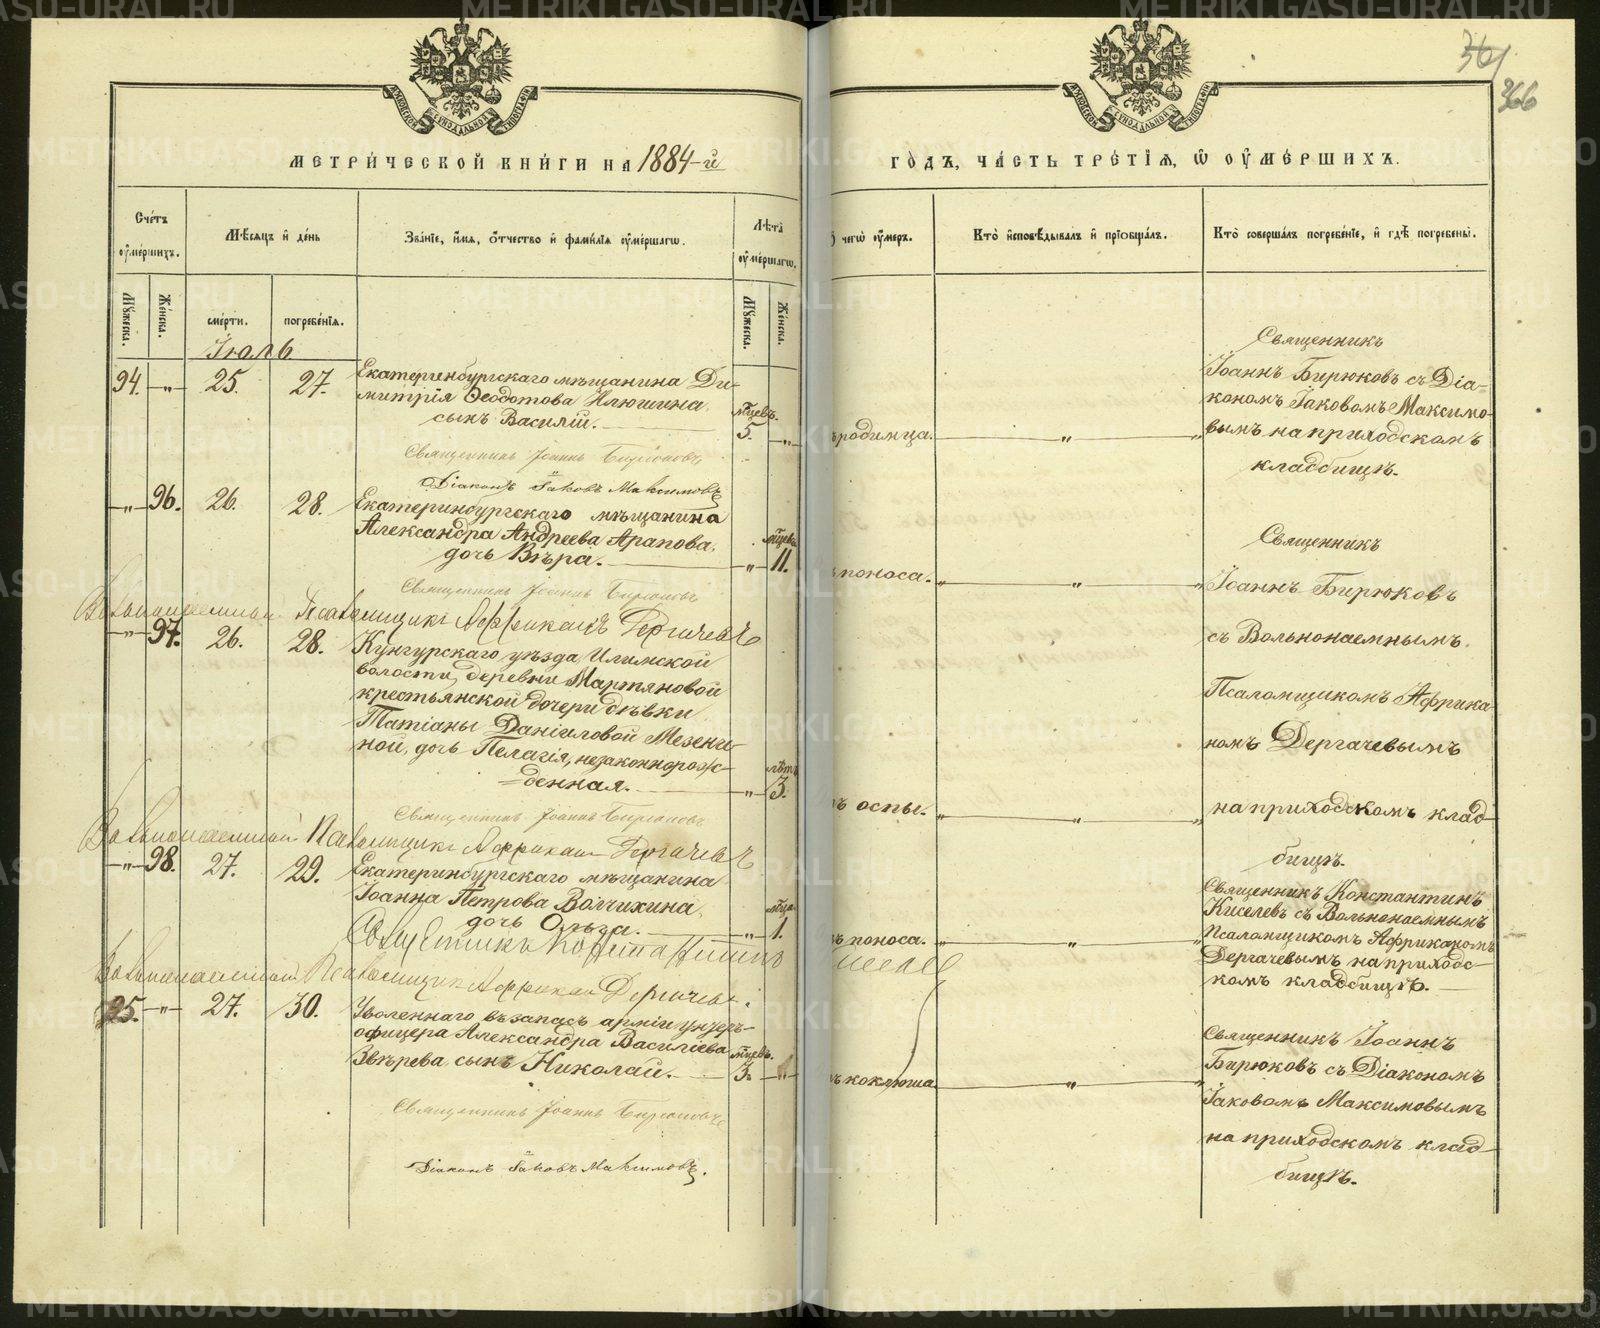 МЕТРИЧЕСКОЙ КНИГИ НА 1884-й
ГОДЪ, ЧАСТЬ ТРЕТІЯ, Ѡ ОУМЕРШИХЪ.
366
Счетъ оумершихъ.
Мѣсяцъ и день
Званіе, имя, отчество и фамилія оумершагѡ.
Лѣта оумершагѡ.
чегѡ оумеръ.
Кто исповѣдывалъ и пріобщалъ.
Кто совершалъ погребеніе, и гдѣ погребены.
Мужеска.
Женска.
смерти.
погребенія.
Мужеска.
Женска.
Іюль
94. — „ 25. 27.
Екатеринбургскаго мѣщанина Ди-
митрія Ѳеодотова Илюшина
сынъ Василій.
мѣцевъ.
5. „
родимца.
Священникъ
Іоаннъ Бирюковъ съ Діа-
кономъ Іаковомъ Максимо-
вымъ на приходскомъ
кладбищѣ.
Священникъ Іоаннъ Бирюковъ
Діаконъ Іаковъ Максимовъ
„ 96. 26. 28.
Екатеринбургскаго мѣщанина
Александра Андреева Арапова
дочь Вѣра.
мѣцевъ
„ 11.
поноса.
Священникъ Іоаннъ Бирюковъ
Вольнонаемный Псаломщикъ Африканъ Дергачевъ
„ 97. 26. 28.
Кунгурскаго уѣзда Илимской
волости, деревни Мартяновой
крестьянской дочери дѣвки
Татіаны Даніиловой Мезени-
ной, дочь Пелагія, незаконнорож-
денная.
лѣтъ
„ 3.
оспы.
Священникъ
Іоаннъ Бирюковъ
съ Вольнонаемнымъ
Псаломщикомъ Африка-
номъ Дергачевымъ
на приходскомъ клад-
бищѣ.
Священникъ Іоаннъ Бирюковъ
Вольнонаемный Псаломщикъ Африканъ Дергачевъ
„ 98. 27. 29.
Екатеринбургскаго мѣщанина
Іоанна Петрова Волчихина
дочь Ольга.
мѣца
„ 1.
поноса.
Священникъ Константинъ
Киселевъ съ Вольнонаемнымъ
Псаломщикомъ Африканомъ
Дергачевымъ на приходс-
комъ кладбищѣ.
Священникъ Константинъ
Вольнонаемный Псаломщикъ Африканъ Дергачевъ.
95. — „ 27. 30.
Уволеннаго въ запасъ арміи унтеръ-
офицера Александра Василіева
Звѣрева сынъ Николай.
мѣцевъ.
3. „
коклюша
Священникъ Іоаннъ
Бирюковъ съ Діакономъ
Іаковомъ Максимовымъ
на приходскомъ клад-
бищѣ.
Священникъ Іоаннъ Бирюковъ
Діаконъ Іаковъ Максимовъ.
METRIKI.GASO-URAL.RU